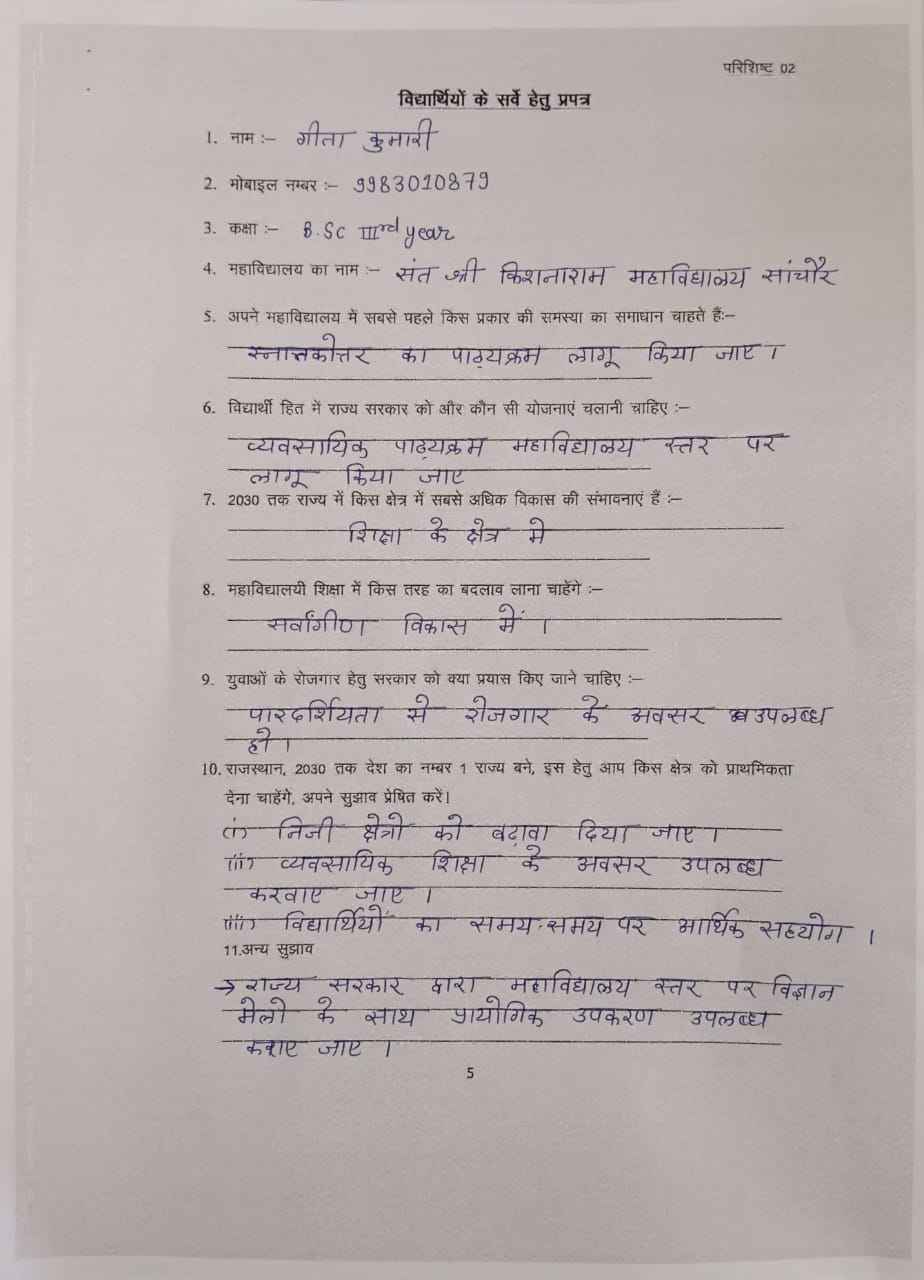 परिशिष्ट 02
विद्यार्थियों के सर्वे हेतु प्रपत्र
1. नाम :– गीता कुमारी
2. मोबाइल नम्बर :– 9983010879
3. कक्षा :– B.Sc IIIrd year
4. महाविद्यालय का नाम :– संत श्री किशनाराम महाविद्यालय सांचौर
5. अपने महाविद्यालय में सबसे पहले किस प्रकार की समस्या का समाधान चाहते हैः–
स्नात्तकोत्तर का पाठ्यक्रम लागू किया जाए।
6. विद्यार्थी हित में राज्य सरकार को और कौन सी योजनाएं चलानी चाहिए :–
व्यवसायिक पाठ्यक्रम महाविद्यालय स्तर पर
लागू किया जाए
7. 2030 तक राज्य में किस क्षेत्र में सबसे अधिक विकास की संभावनाएं हैं :–
शिक्षा के क्षेत्र मे
8. महाविद्यालयी शिक्षा में किस तरह का बदलाव लाना चाहेंगे :–
सर्वांगीण विकास में।
9. युवाओं के रोजगार हेतु सरकार को क्या प्रयास किए जाने चाहिए :–
पारदर्शियता से रोजगार के अवसर उपलब्ध
हो।
10. राजस्थान, 2030 तक देश का नम्बर 1 राज्य बने, इस हेतु आप किस क्षेत्र को प्राथमिकता
देना चाहेंगे, अपने सुझाव प्रेषित करें।
(i) निजी क्षेत्रो को बढ़ावा दिया जाए।
(ii) व्यवसायिक शिक्षा के अवसर उपलब्ध
करवाए जाए।
(iii) विद्यार्थियों का समय-समय पर आर्थिक सहयोग।
11.अन्य सुझाव
→ राज्य सरकार द्वारा महाविद्यालय स्तर पर विज्ञान
मेलो के साथ प्रायोगिक उपकरण उपलब्ध
कराए जाए।
5